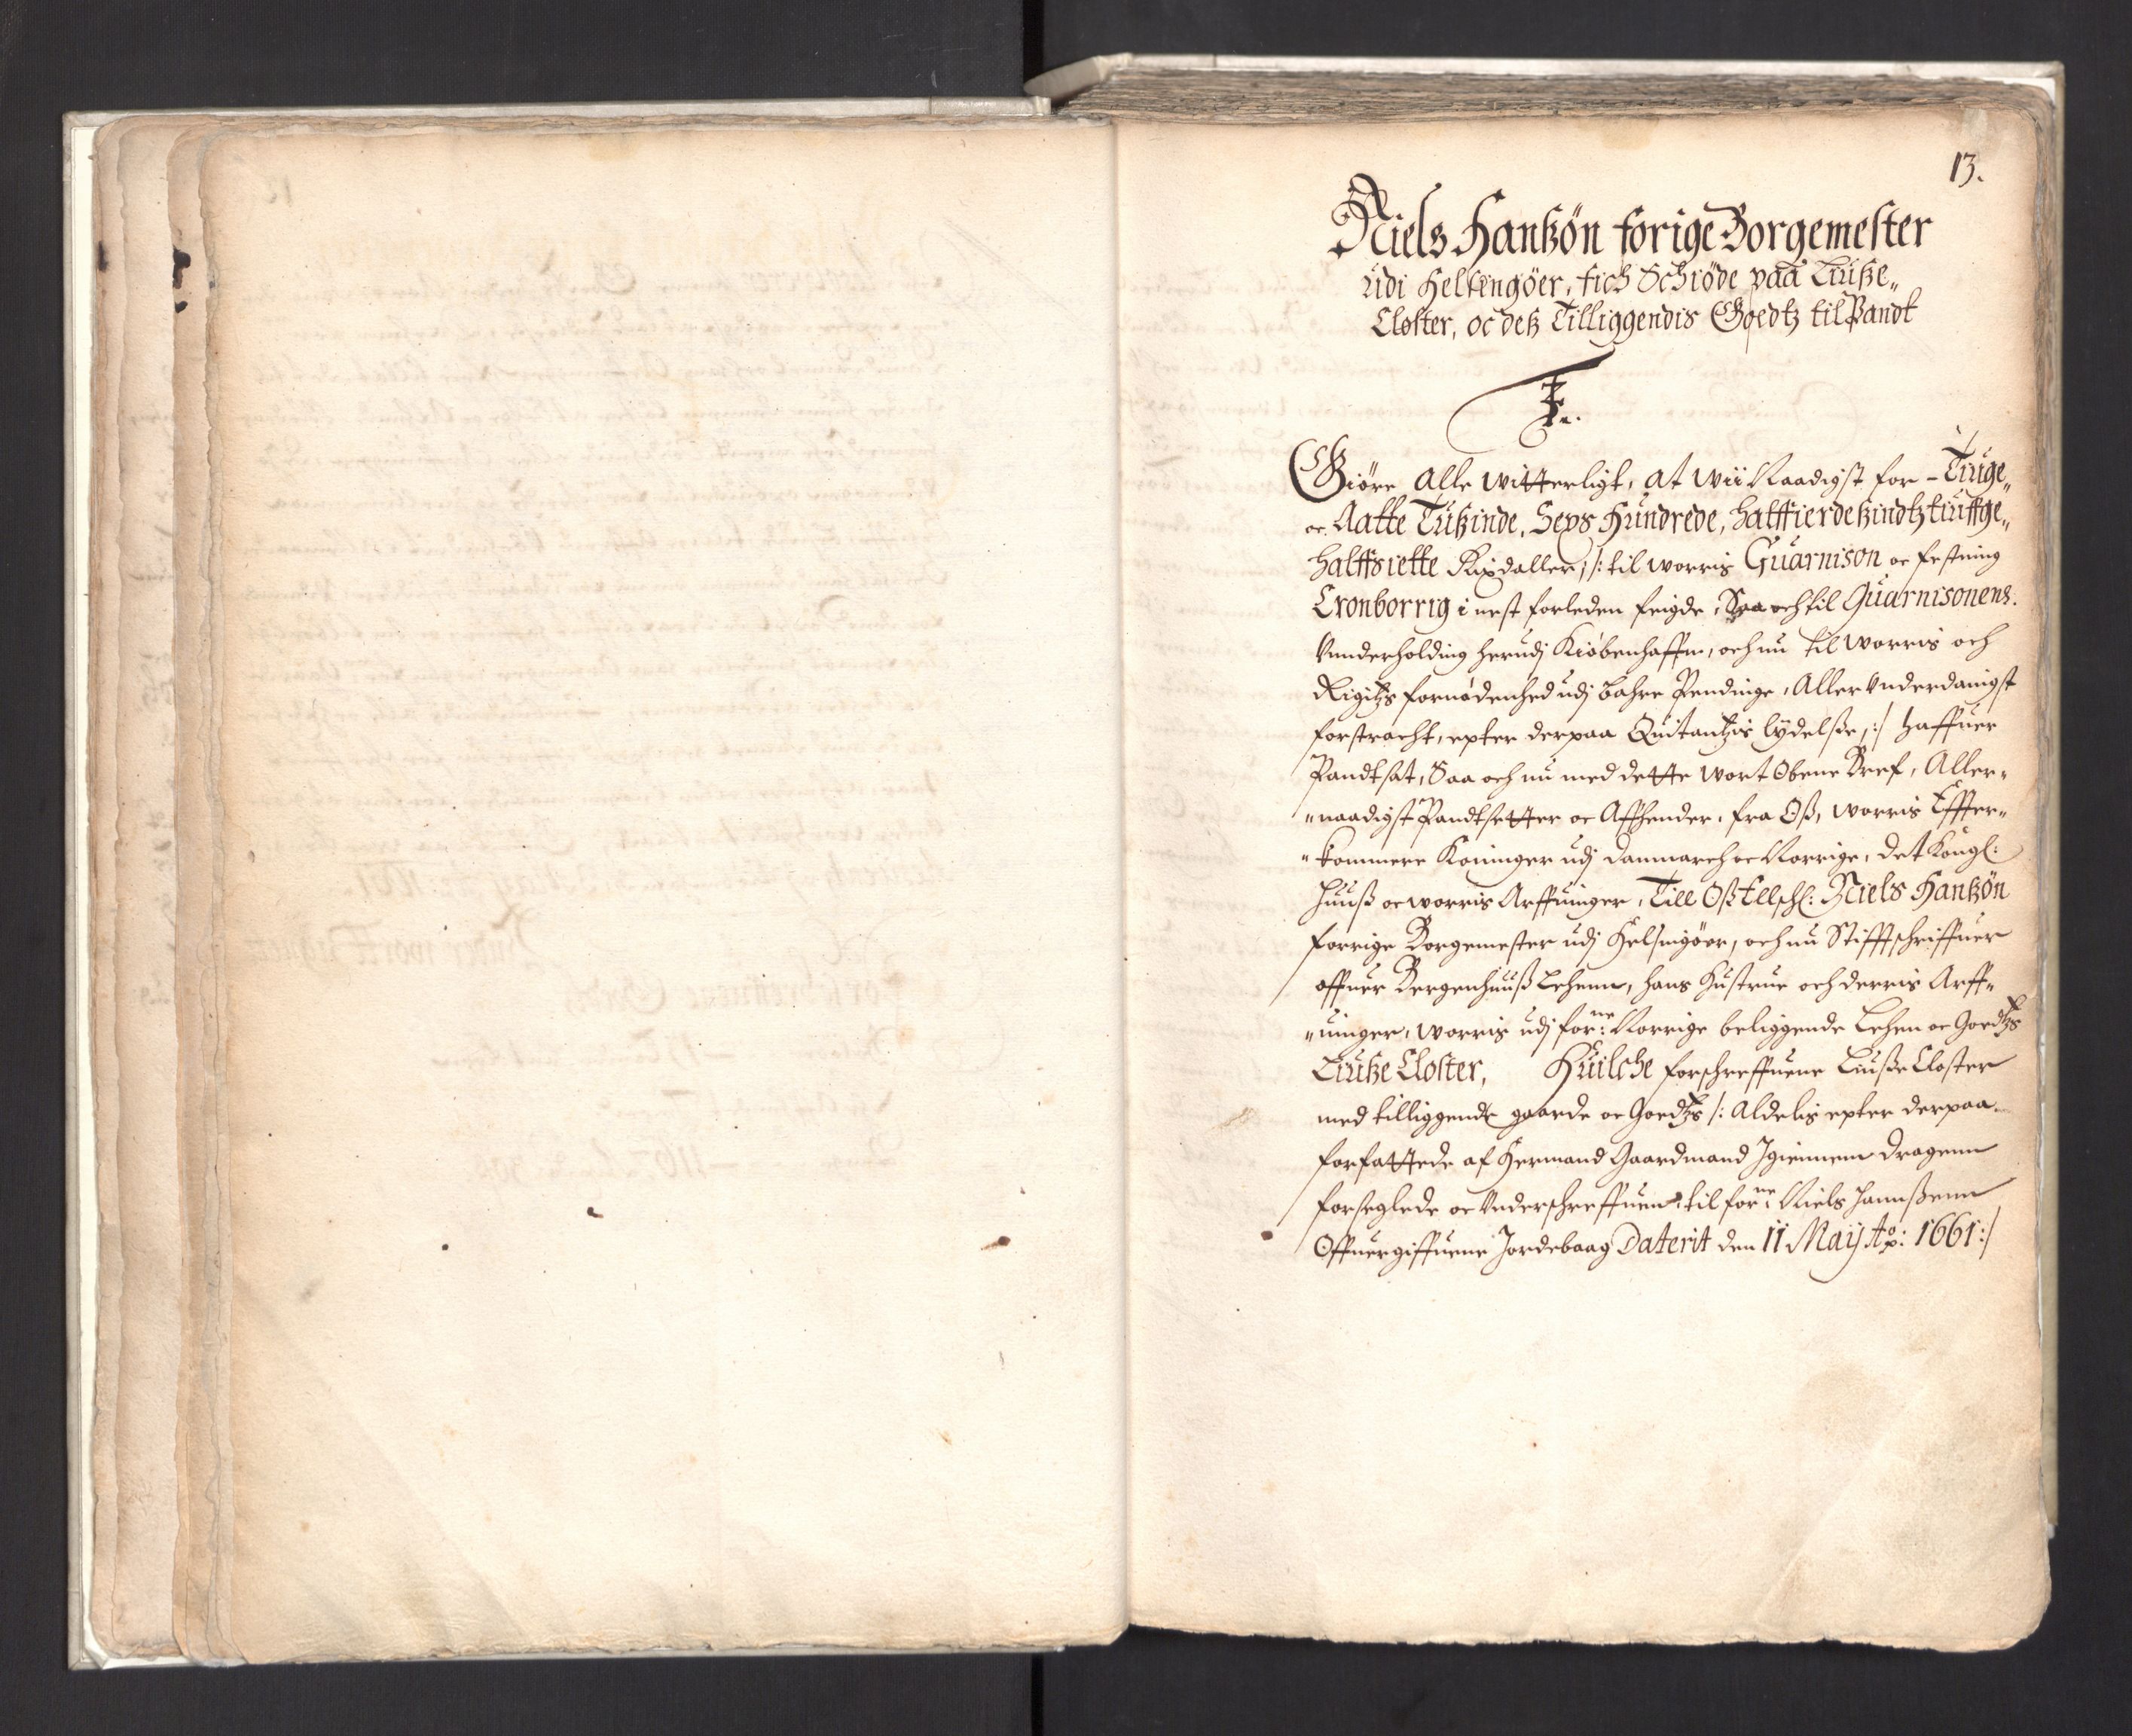 13.
Niels Hanßøn forige Borgemester
udi Helsingöer, fich Schiöde paa Liuße„
Closter, oc deß Tilliggendis Goedtz til Pandt
F.
Giöre Alle witterligt, at wii Naadigst for - Tiuge„
oc Aatte Tußinde, Seys Hundrede, halffierdeßindtztiuffge„
halffsiette Rixdaller, /: til worris Guarnison oc festning
Cronborrig i nest forleden feigde, Saa och til Guarnisonens.
Vnnderholding herudj Kiöbenhaffn, och nu til worris och
Rigitzs fornödenhed udj bahre Pendinge, Allervnderdanigst
forstracht, epter derpaa Quitantzis lÿdelße, :/ haffuer
Pandtsat, Saa och nu med dette wort Obene Bref, Aller„
„naadigst Pandtsetter oc Affhender, fra Oß, worris Effter„
„kommere Koninger udj Danmarch oc Norrige, det Kongl:
Huuß oc worris Arffuinger, Till Oß Ellschl: Niels Hanßøn
forrige Borgemester udj Helsingöer, och nu Stifftschriffuer
offuer Bergenhuuß Lehenn, hans Hustrue och derris Arff„
„uinger, worris udj forne: Norrige beliggende Lehen oc Goedtzs
Liuße Closter, Huilche forschreffuene Liuße Closter
med tilliggende gaarde oc Goedtzs /: Aldelis epter derpaa
forfattede af Hermand Gaardmand Igiennem dragenn
forseglede oc Vnderschreffuen, til forne: Niels Hannßenn
Offuergiffuene Jordebaag Daterit den 11 Maÿ Ao: 1661:/